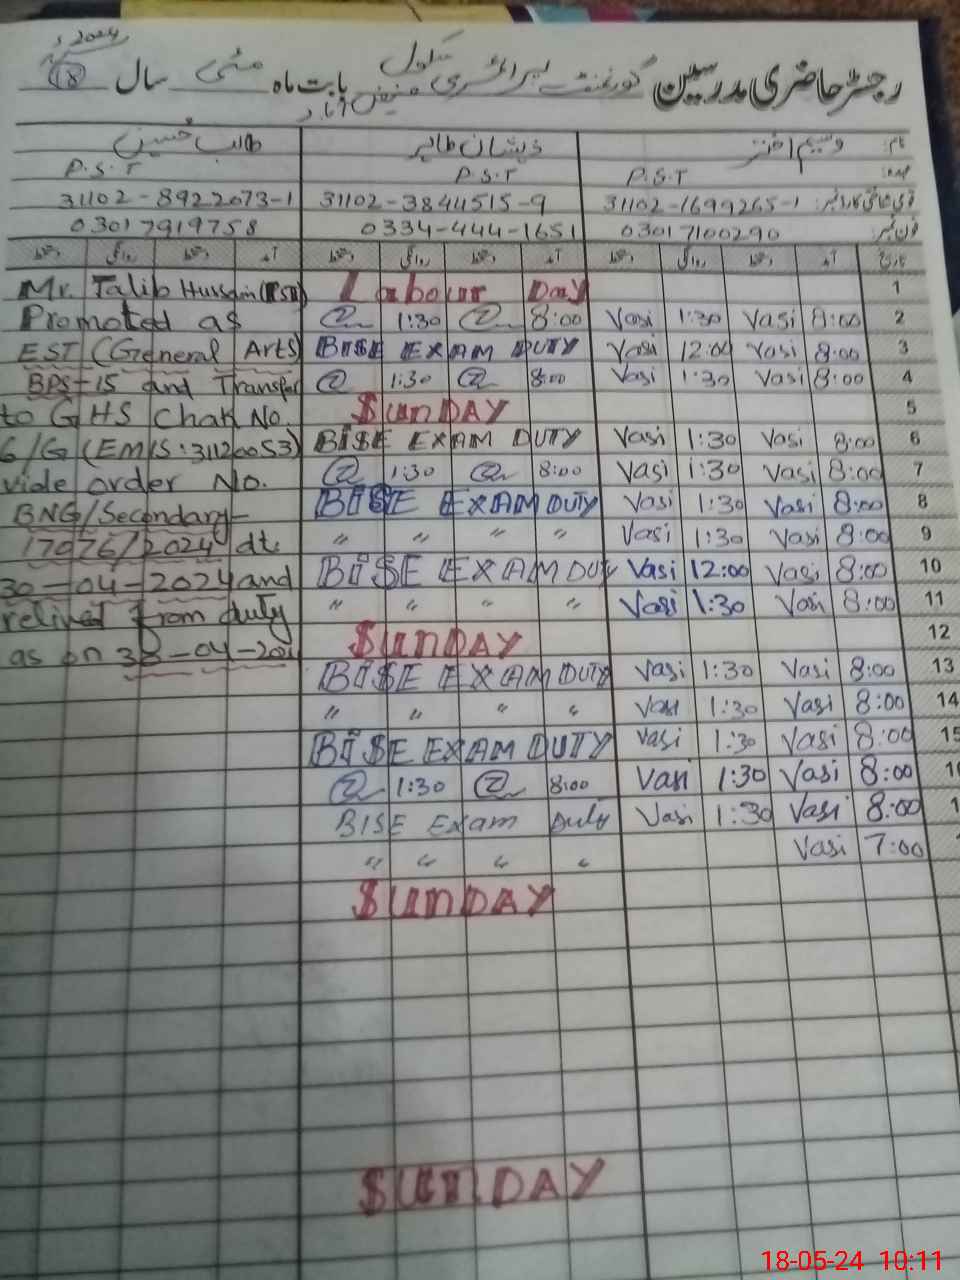 2024
رجسٹر حاضری مدرسین گورنمنٹ پرائمری سکول فیض آباد بابت ماہ مئی سال
نام: وسیم اختر ذیشان طاہر طالب حسین
عہدہ: P.S.T P.S.T P.S.T
قومی شناختی کارڈ نمبر: 31102-1699265-1 31102-3844515-9 31102-8922073-1
فون نمبر: 03017100290 0334-444-1651 03017919758
تاریخ آمد دستخط روانگی دستخط آمد دستخط روانگی دستخط آمد دستخط روانگی دستخط
Mr. Talib Hussain (PST) Labour Day 1
Promoted as 1:30 8:00 Vasi 1:30 Vasi 8:00 2
EST (General Arts) BISE EXAM DUTY Vasi 12:00 Vasi 8:00 3
BPS-15 and Transfer 1:30 8:00 Vasi 1:30 Vasi 8:00 4
to GHS Chak No. SUNDAY 5
6/G (EMIS:31120053) BISE EXAM DUTY Vasi 1:30 Vasi 8:00 6
vide order No. 1:30 8:00 Vasi 1:30 Vasi 8:00 7
BNG/Secondary- BISE EXAM DUTY Vasi 1:30 Vasi 8:00 8
17076/2024 dt. " " " " Vasi 1:30 Vasi 8:00 9
30-04-2024 and BISE EXAM DUTY Vasi 12:00 Vasi 8:00 10
relived from duty " " " " Vasi 1:30 Vasi 8:00 11
as on SUNDAY 12
BISE EXAM DUTY Vasi 1:30 Vasi 8:00 13
" " " " Vasi 1:30 Vasi 8:00 14
BISE EXAM DUTY Vasi 1:30 Vasi 8:00 15
1:30 8:00 Vasi 1:30 Vasi 8:00
BISE Exam Duty Vasi 1:30 Vasi 8:00
" " " " Vasi 7:00
SUNDAY
SUNDAY
18-05-24 10:11